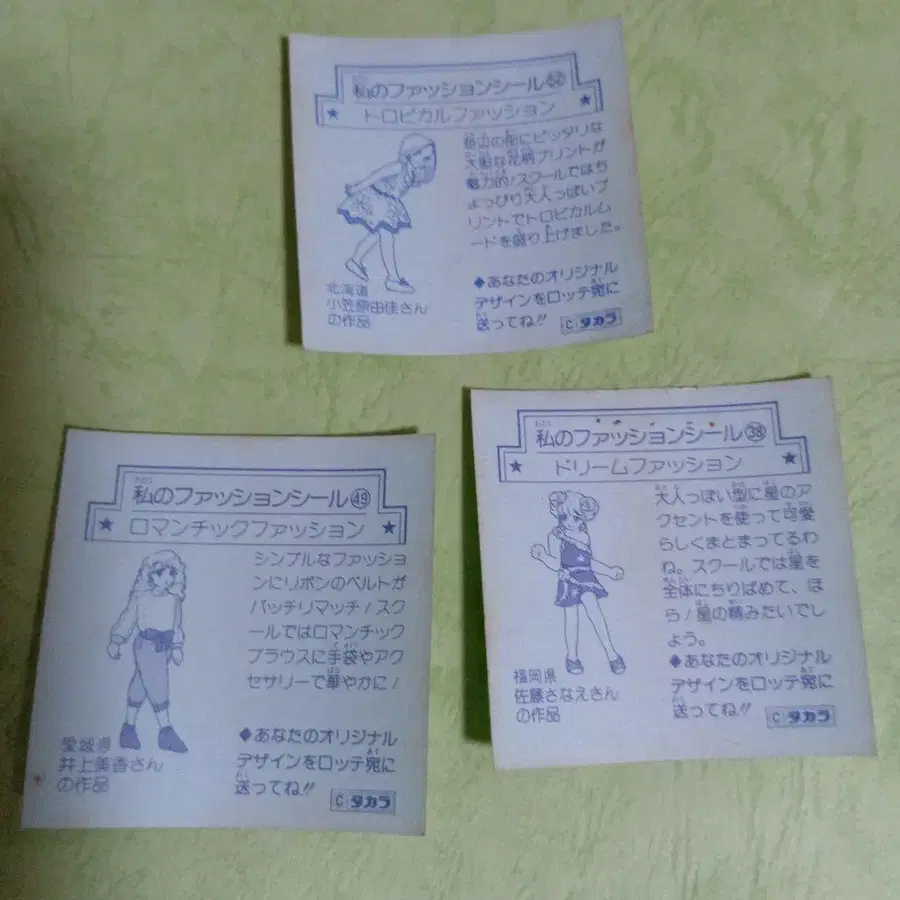 私のファッションシール
トロピカルファッション
海辺の街にピッタリな
大胆な花柄プリントが
魅力的！スクールではち
ょっぴり大人っぽいプ
リントでトロピカルム
ードを盛り上げました。
北海道
小笠原由佳さん
の作品
◆あなたのオリジナル
デザインをロッテ宛に
送ってね!!
C タカラ
私のファッションシール㊾
ロマンチックファッション
シンプルなファッショ
ンにリボンのベルトが
バッチリマッチ！スク
ールではロマンチック
ブラウスに手袋やアク
セサリーで華やかに！
愛媛県
井上美香さん
の作品
◆あなたのオリジナル
デザインをロッテ宛に
送ってね!!
C タカラ
私のファッションシール㊳
ドリームファッション
大人っぽい型に星のア
クセントを使って可愛
らしくまとまってるわ
ね。スクールでは星を
全体にちりばめて、ほ
ら！星の精みたいでし
ょう。
福岡県
佐藤さなえさん
の作品
◆あなたのオリジナル
デザインをロッテ宛に
送ってね!!
C タカラ